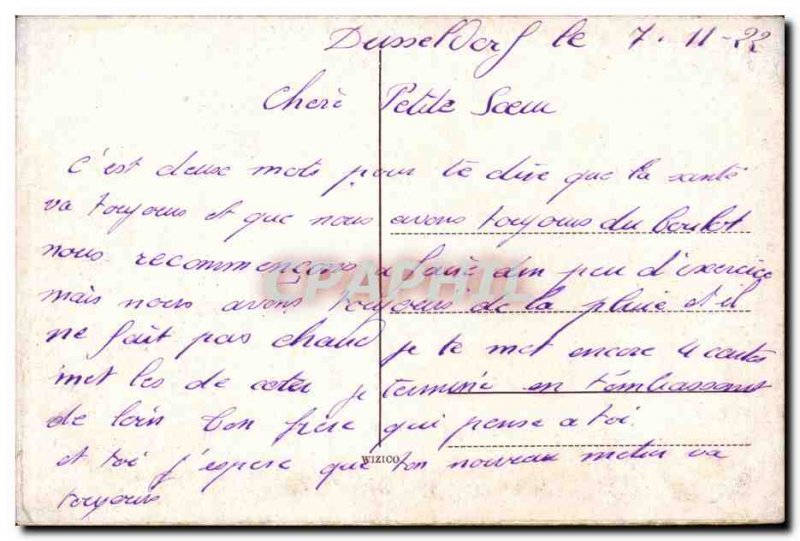 Dusseldorf le 7-11-22
Cheré Petite Sœur
C'est deux mots pour te dire que la santé
va toujours et que nous avons toujours du boulot
nous recommençons a faire d'un peu d'exercice
mais nous avons toujours de la pluie et il
ne fait pas chaud je te met encore 4 cartes
met les de coter je termine en t'embrassant
de loin ton frère qui pense a toi.
et toi j'espère que ton nouveau metier va
toujours
WIZICO
CPAPHIL